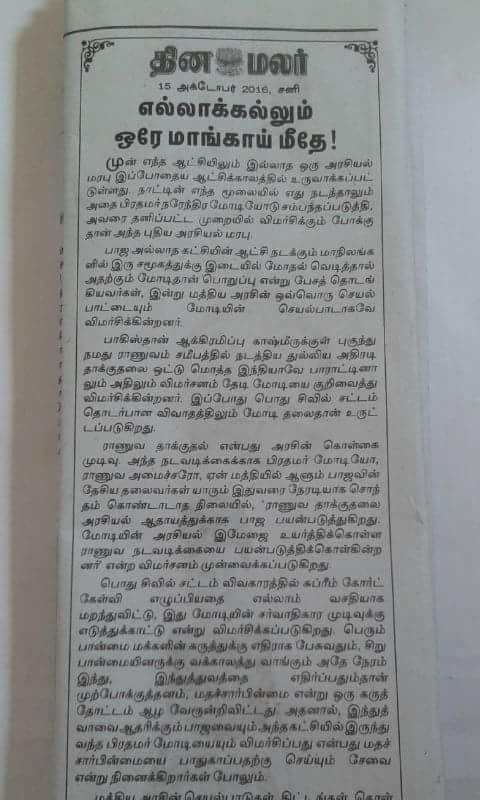 தின மலர்
15 அக்டோபர் 2016, சனி
எல்லாக்கல்லும்
ஒரே மாங்காய் மீதே!
முன் எந்த ஆட்சியிலும் இல்லாத ஒரு அரசியல்
மரபு இப்போதைய ஆட்சிக்காலத்தில் உருவாக்கப்பட்
டுள்ளது.. நாட்டின் எந்த மூலையில் எது நடந்தாலும்
அதை பிரதமர் நரேந்திர மோடியோடு சம்பந்தப்படுத்தி,
அவரை தனிப்பட்ட முறையில் விமர்சிக்கும் போக்கு
தான் அந்த புதிய அரசியல் மரபு.
பாஜ அல்லாத கட்சியின் ஆட்சி நடக்கும் மாநிலங்க
ளில் இரு சமூகத்துக்கு இடையில் மோதல் வெடித்தால்
அதற்கும் மோடிதான் பொறுப்பு என்று பேசத் தொடங்
கியவர்கள், இன்று மத்திய அரசின் ஒவ்வொரு செயல்
பாட்டையும் மோடியின் செயல்பாடாகவே
விமர்சிக்கின்றனர்.
பாகிஸ்தான் ஆக்கிரமிப்பு காஷ்மீருக்குள் புகுந்து
நமது ராணுவம் சமீபத்தில் நடத்திய துல்லிய அதிரடி
தாக்குதலை ஒட்டு மொத்த இந்தியாவே பாராட்டினா
லும் அதிலும் விமர்சனம் தேடி மோடியை குறிவைத்து
விமர்சிக்கின்றனர். இப்போது பொது சிவில் சட்டம்
தொடர்பான விவாதத்திலும் மோடி தலைதான் உருட்
டப்படுகிறது.
ராணுவ தாக்குதல் என்பது அரசின் கொள்கை
முடிவு. அந்த நடவடிக்கைக்காக பிரதமர் மோடியோ,
ராணுவ அமைச்சரோ, ஏன் மத்தியில் ஆளும் பாஜவின்
தேசிய தலைவர்கள் யாரும் இதுவரை நேரடியாக சொந்
தம் கொண்டாடாத நிலையில், 'ராணுவ தாக்குதலை
அரசியல் ஆதாயத்துக்காக பாஜ பயன்படுத்துகிறது.
மோடியின் அரசியல் இமேஜை உயர்த்திக்கொள்ள
ராணுவ நடவடிக்கையை பயன்படுத்திக்கொள்கின்ற
னர்' என்ற விமர்சனம் முன்வைக்கப்படுகிறது.
பொது சிவில் சட்டம் விவகாரத்தில் சுப்ரீம் கோர்ட்
கேள்வி எழுப்பியதை எல்லாம் வசதியாக
மறந்துவிட்டு, இது மோடியின் சர்வாதிகார முடிவுக்கு
எடுத்துக்காட்டு என்று விமர்சிக்கப்படுகிறது. பெரும்
பான்மை மக்களின் கருத்துக்கு எதிராக பேசுவதும், சிறு
பான்மையினருக்கு வக்காலத்து வாங்கும் அதே நேரம்
இந்து, இந்துத்துவத்தை எதிர்ப்பதும்தான்
முற்போக்குத்தனம், மதச்சார்பின்மை என்று ஒரு கருத்
தோட்டம் ஆழ வேரூன்றிவிட்டது. அதனால், இந்துத்
வாவை ஆதரிக்கும் பாஜவையும் அந்த கட்சியில் இருந்து
வந்த பிரதமர் மோடியையும் விமர்சிப்பது என்பது மதச்
சார்பின்மையை பாதுகாப்பதற்கு செய்யும் சேவை
என்று நினைக்கிறார்கள் போலும்.
மத்திய அரசின் செயல்பாடுகள், திட்டங்கள், கொள்